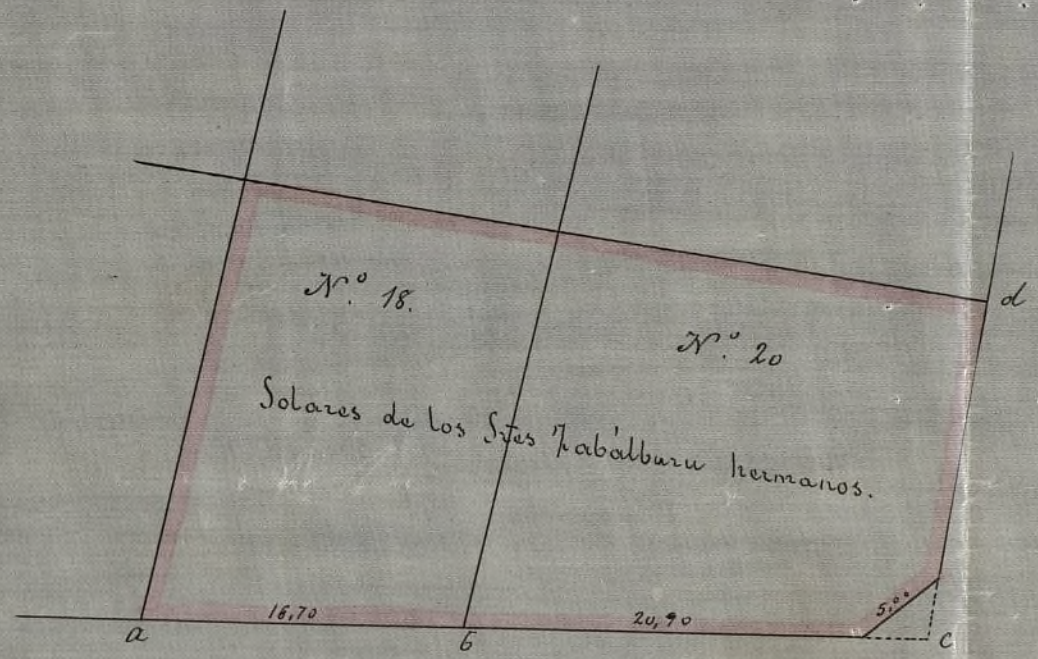 N.º 18.
N.º 20
d
Solares de los Sres Zabálburu hermanos.
16,70
20,90
5,00
a
b
c